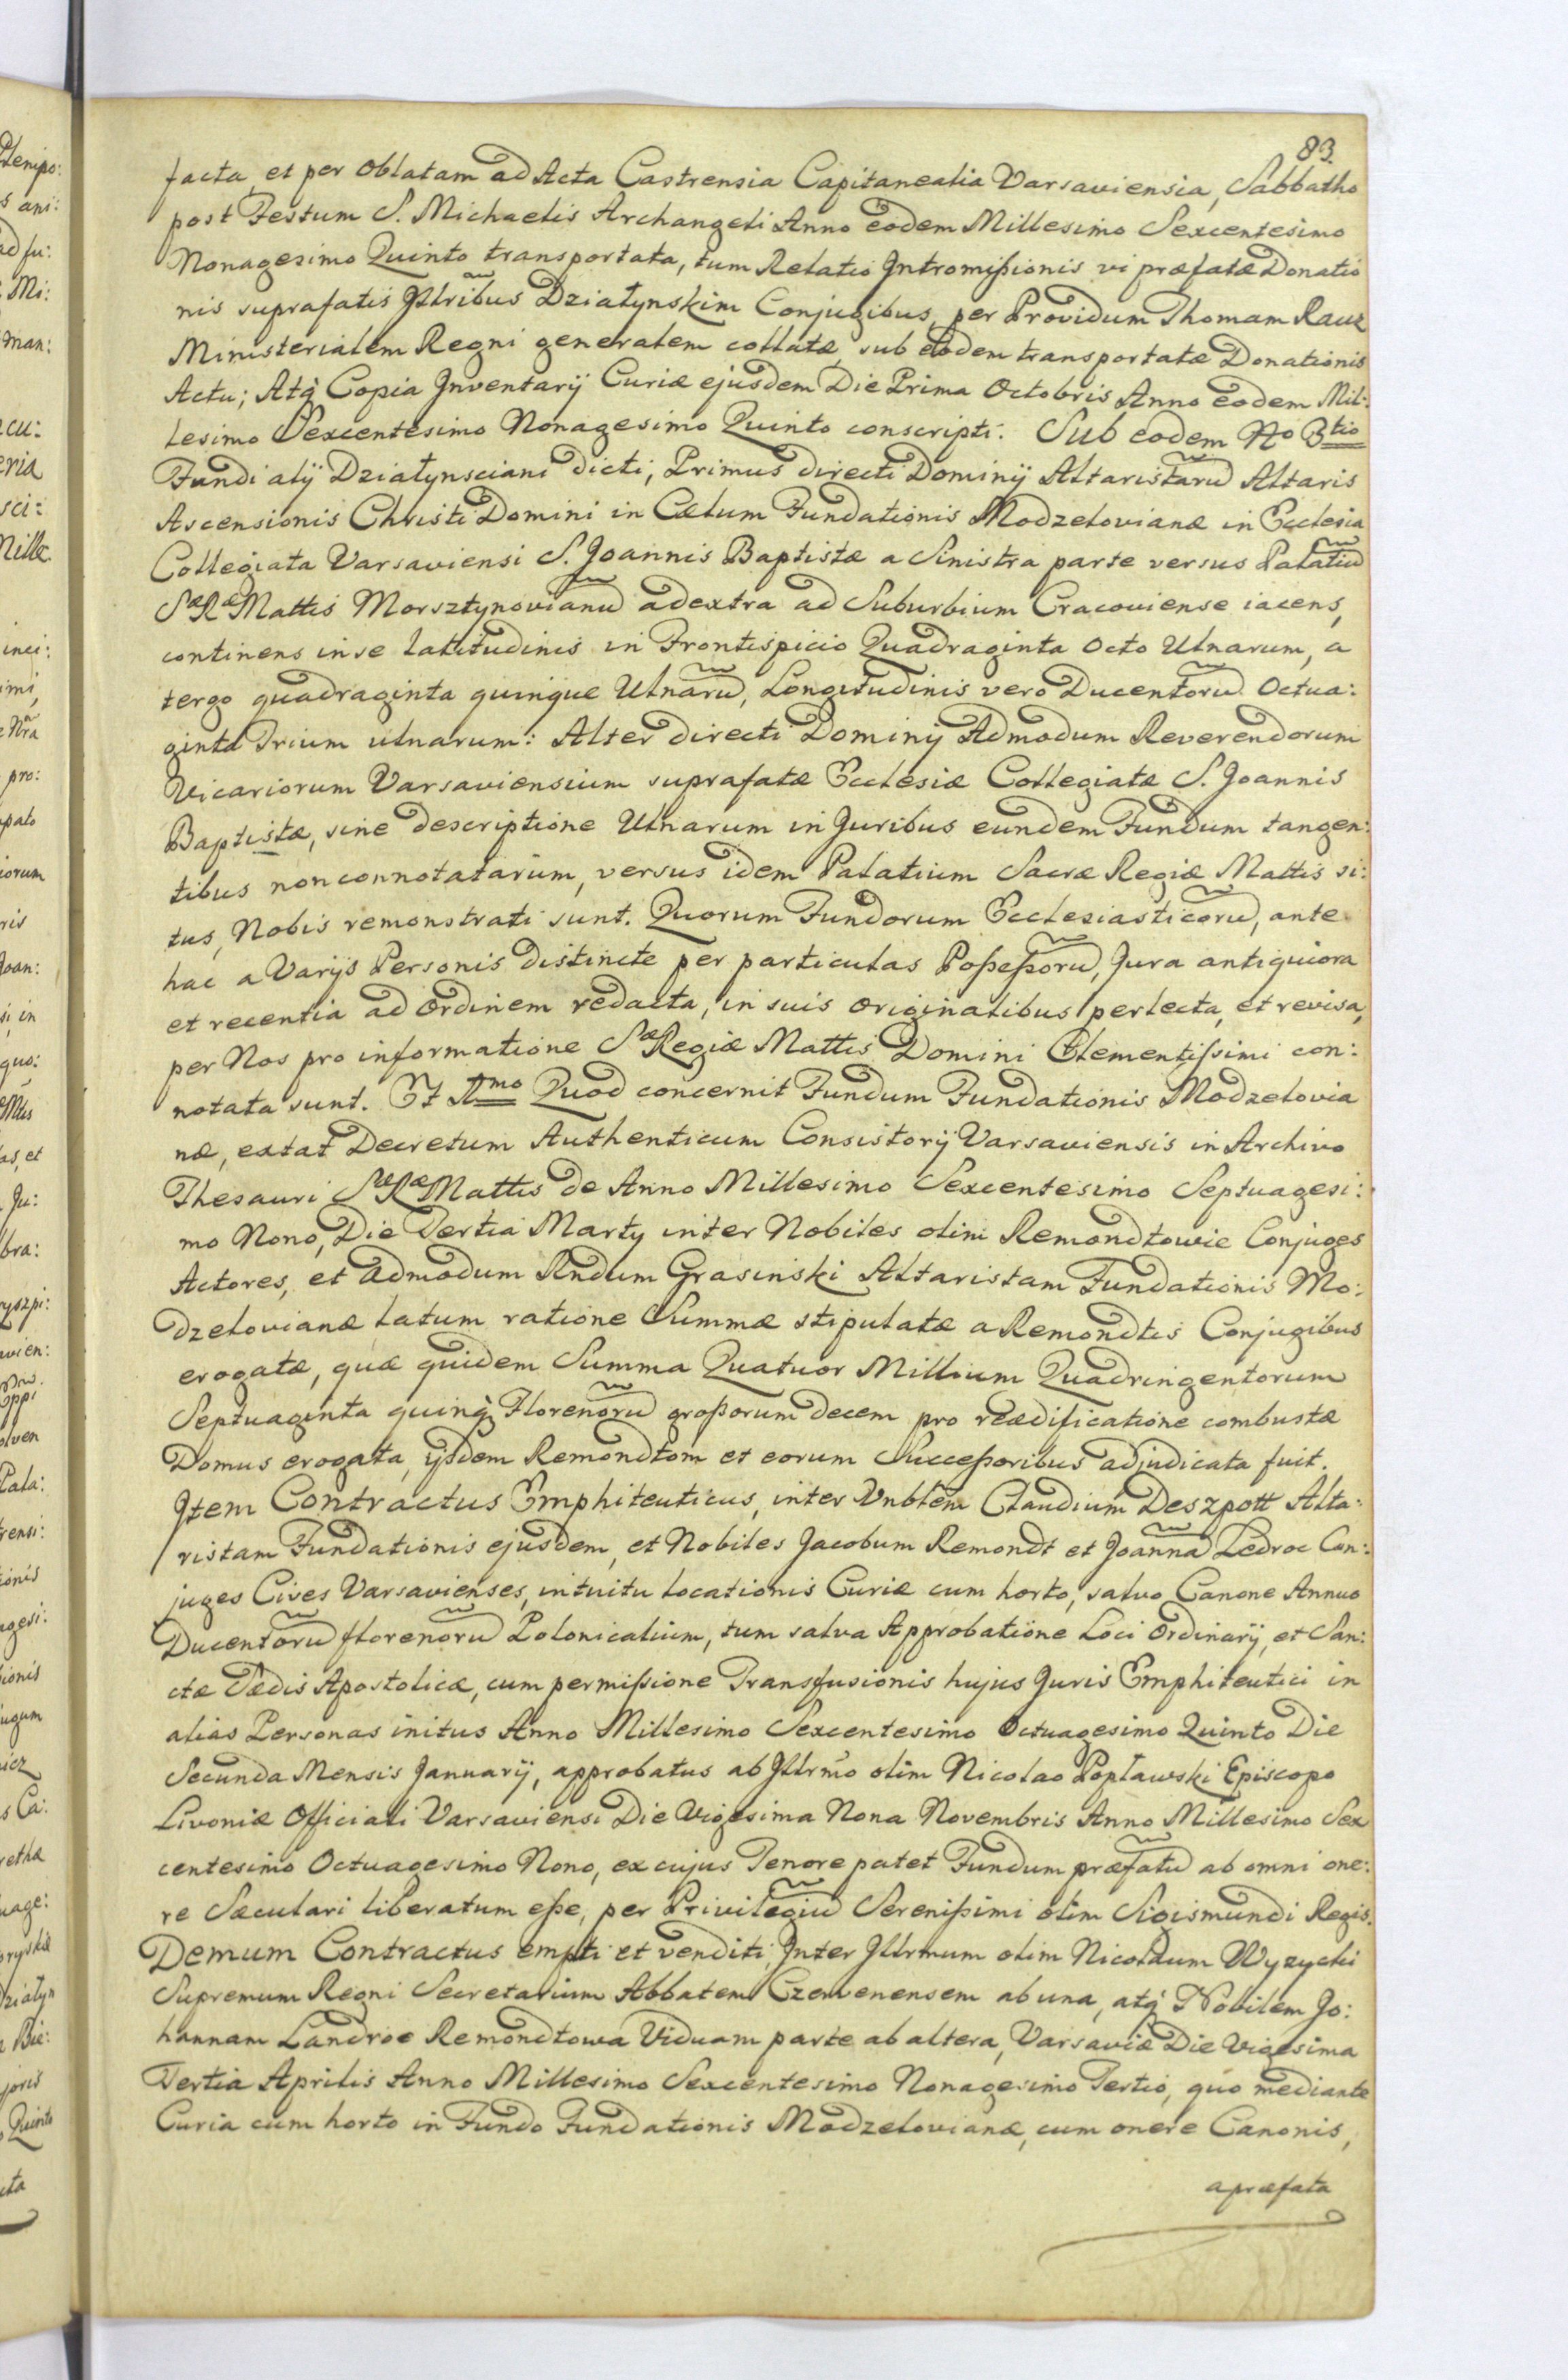 83.
facta, et per Oblatam ad Acta Castrensia Capitanealia Varsaviensia, Sabbatho
post Festum S. Michaelis Archangeli Anno eodem Millesimo Sexcentesimo
Nonagesimo Quinto transportata, tum Relatio Intromißionis vi præfatæ Donatio
nis suprafatis Illribus Działynskim Conjugibus, per Providum Thomam Rauz
Ministerialem Regni generalem collatæ, sub eodem transportatæ Donationis
Actu; Atq́ Copia Inventarÿ Curiæ ejusdem Die Prima Octobris Anno eodem Mil:
lesimo Sexcentesimo Nonagesimo Quinto conscripti. Sub eodem No 3tio
Fundi alÿ Działynsciani dicti, Primus directi Dominÿ Altaristarũ Altaris
Ascensionis Christi Domini in Cælum Fundationis Modzelovianæ in Ecclesia
Collegiata Varsaviensi S. Joannis Baptistæ a Sinistra parte versus Palatiũ
Sæ Ræ Mattis Morsztynovianũ adextra ad Suburbium Cracoviense iacens,
continens inse latitudinis in Frontispicio Quadraginta Octo Ulnarum, a
tergo quadraginta quinque Ulnarũ, Longitudinis vero Ducentorũ Octua:
ginta Trium ulnarum: Alter directi Dominÿ Admodum Reverendorum
Vicariorum Varsaviensium suprafatæ Ecclesiæ Collegiatæ S. Joannis
Baptistæ, sine descriptione Ulnarum in Juribus eundem Fundum tangen:
tibus nonconnotatarum, versus idem Palatium Sacræ Regiæ Mattis si:
tus, Nobis remonstrati sunt. Quorum Fundorum Ecclesiasticorũ, ante
hac a Varijs Personis distincte per particulas Poßeßorũ, Jura antiquiora
et recentia ad Ordinem redacta, in suis Originalibus perlecta, et revisa,
per Nos pro informatione Sæ Regiæ Mattis Domini Clementißimi con:
notata sunt. Et Imo Quod concernit Fundum Fundationis Modzelovia
næ, extat Decretum Authenticum Consistorÿ Varsaviensis in Archivo
Thesauri Sæ Ræ Mattis de Anno Millesimo Sexcentesimo Septuagesi:
mo Nono, Die Tertia Martÿ inter Nobiles olim Remondtowie Conjuges
Actores, et admodum Rndum Grasinski Altaristam Fundationis Mo:
dzelovianæ latum ratione Summæ stipulatæ a Remondtis Conjugibus
erogatæ, quæ quidem Summa Quatuor Millium Quadringentorum
Septuaginta quinq́ Florenorũ großorum decem pro reædificatione combustæ
Domus erogata, ÿsdem Remondtom et eorum Succeßoribus adjudicata fuit.
Item Contractus Emphiteuticus, inter Vnblem Claudium Deszpott Alta:
ristam Fundationis ejusdem, et Nobiles Jacobum Remondt et Joannã Ledroe Con:
juges Cives Varsavienses, intuitu locationis Curiæ cum horto, salvo Canone Annuo
Ducentorũ florenorũ Polonicalium, tum salva Approbatione Loci Ordinarÿ, et San:
ctæ Sædis Apostolicæ, cum permißione Transfusionis hujus Juris Emphiteutici in
alias Personas initus Anno Millesimo Sexcentesimo Octuagesimo Quinto Die
Secunda Mensis Januarÿ, approbatus ab Illrmo olim Nicolao Popławski Episcopo
Livoniæ Officiali Varsaviensi Die Vigesima Nona Novembris Anno Millesimo Sex
centesimo Octuagesimo Nono, ex cujus Tenore patet Fundum præfatũ ab omni one:
re Sæculari liberatum eße, per Privilegiũ Serenißimi olim Sigismundi Regis.
Demum Contractus empti et venditi, Inter Illrmum olim Nicolaum Wyzycki
Supremum Regni Secretarium Abbatem Czervenensem ab una, atq́ Nobilem Jo:
hannam Landroe Remondtowa Viduam parte ab altera, Varsaviæ Die Vigesima
Tertia Aprilis Anno Millesimo Sexcentesimo Nonagesimo Tertio, quo mediante
Curia cum horto in Fundo Fundationis Modzelovianæ, cum onere Canonis,
apræfata